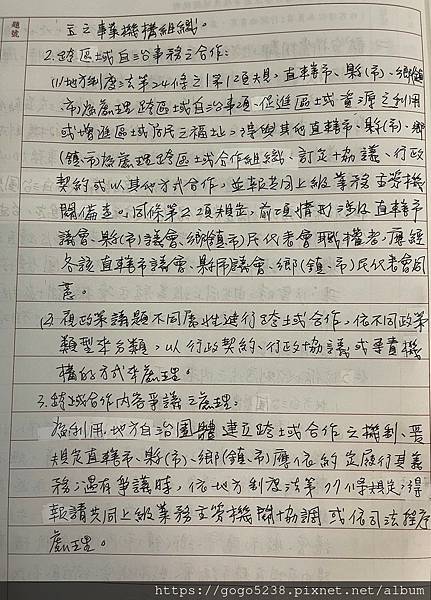 題號
立之專責機構組織。
2.跨區域自治事務之合作:
(1)地方制度法第24條之1第1項規定,直轄市、縣(市)、鄉(鎮、
市)為處理跨區域自治事項、促進區域資源之利用
或增進區域居民之福祉,得與其他直轄市、縣(市)、鄉
(鎮、市)成立跨區域合作組織、訂定協議、行政
契約或以其他方式合作,並報共同上級業務主管機
關備查。同條第2項規定,前項情形涉及直轄市
議會、縣(市)議會、鄉(鎮、市)民代表會職權者,應經
各該直轄市議會、縣(市)議會、鄉(鎮、市)民代表會同
意。
(2)視政策議題不同屬性進行跨域合作,依不同政策
類型來分類,以行政契約、行政協議或專責機
構的方式來處理。
3.跨域合作內容爭議之處理:
為利用地方自治團體建立跨域合作之機制,爰
規定直轄市、縣(市)、鄉(鎮、市)應依約定履行其義
務;遇有爭議時,依地方制度法第77條規定,得
報請共同上級業務主管機關協調或依司法程序
處理。
https://gogo5238.pixnet.net/album